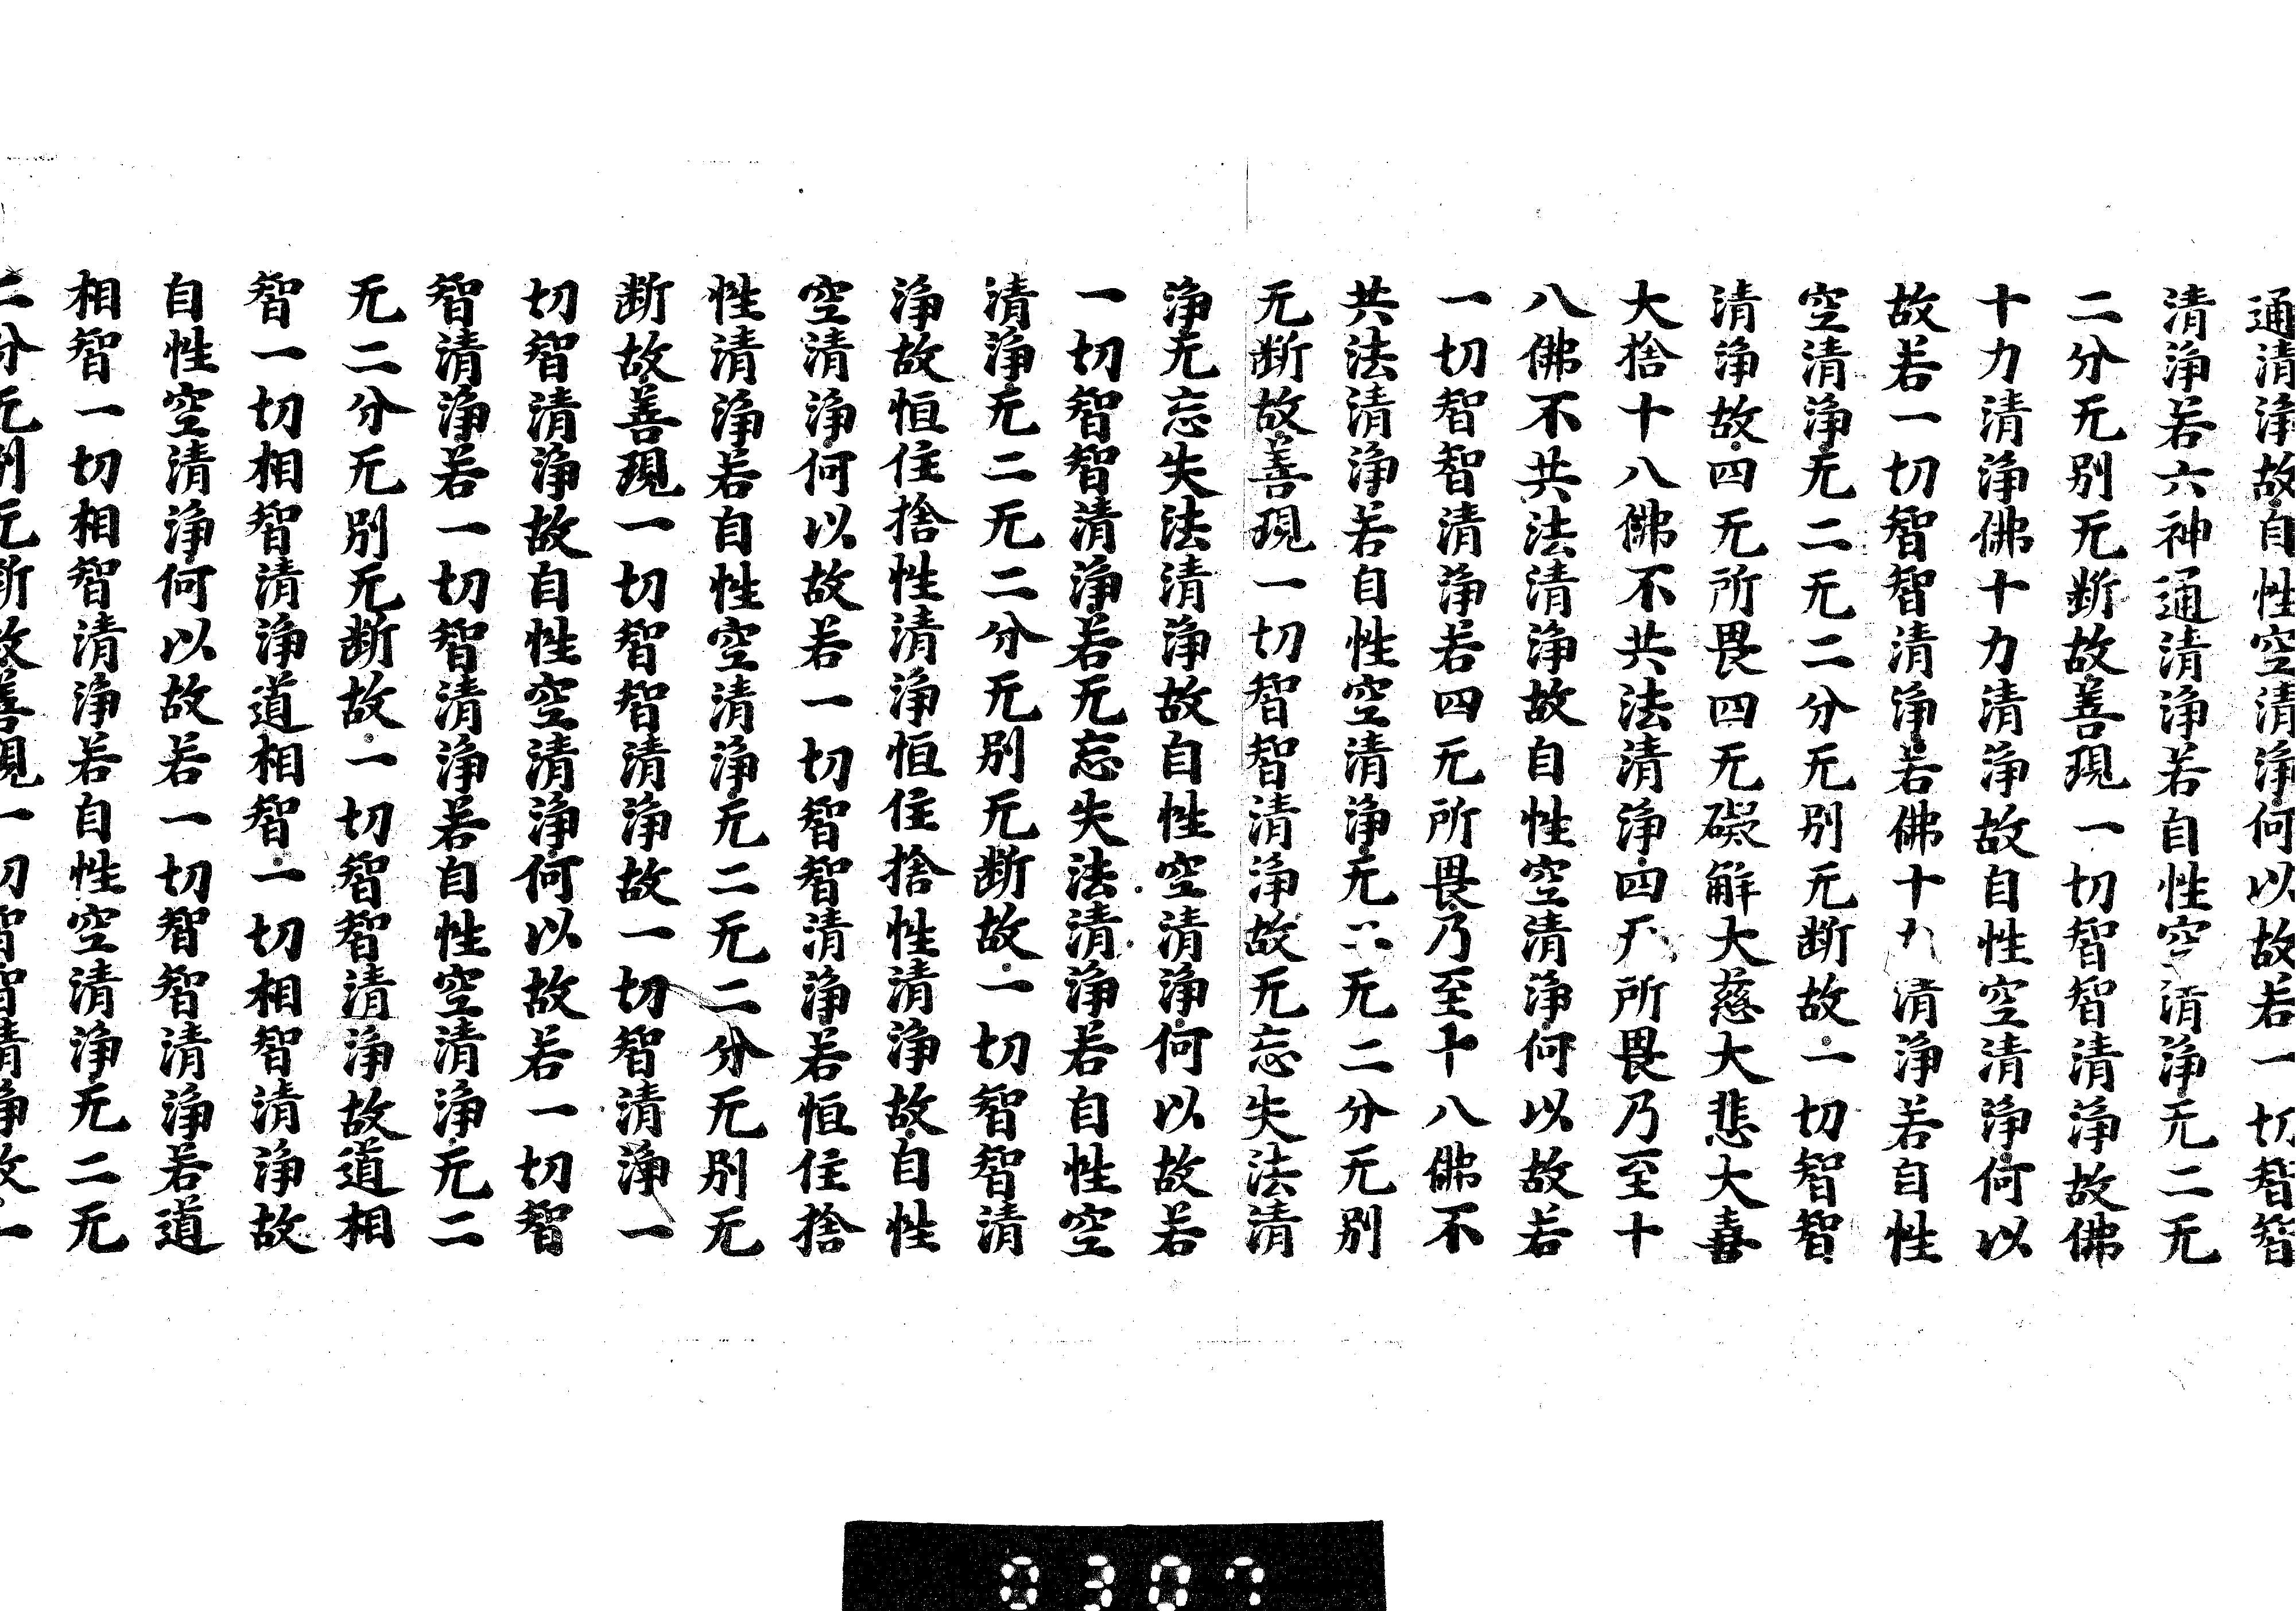 通清淨故自性空清淨何以故若一切智智
清淨若六神通清淨若自性空清淨无二无
二分无別无断故善現一切智智清淨故佛
十力清淨佛十力清淨故自性空清淨何以
故若一切智智清淨若佛十力清淨若自性
空清淨无二无二分无別无断故一切智智
清淨故四无所畏四无礙解大慈大悲大喜
大捨十八佛不共法清淨四无所畏乃至十
八佛不共法清淨故自性空清淨何以故若
一切智智清淨若四无所畏乃至十八佛不
共法清淨若自性空清淨无二无二分无別
无断故善現一切智智清淨故无忘失法清
淨无忘失法清淨故自性空清淨何以故若
一切智智清淨若无忘失法清淨若自性空
清淨无二无二分无別无断故一切智智清
淨故恒住捨性清淨恒住捨性清淨故自性
空清淨何以故若一切智智清淨若恒住捨
性清淨若自性空清淨无二无二分无別无
断故善現一切智智清淨故一切智清淨一
切智清淨故自性空清淨何以故若一切智
智清淨若一切智清淨若自性空清淨无二
无二分无別无断故一切智智清淨故道相
智一切相智清淨道相智一切相智清淨故
自性空清淨何以故若一切智智清淨若道
相智一切相智清淨若自性空清淨无二无
二分无別无断故善現一切智智清淨故一
0307